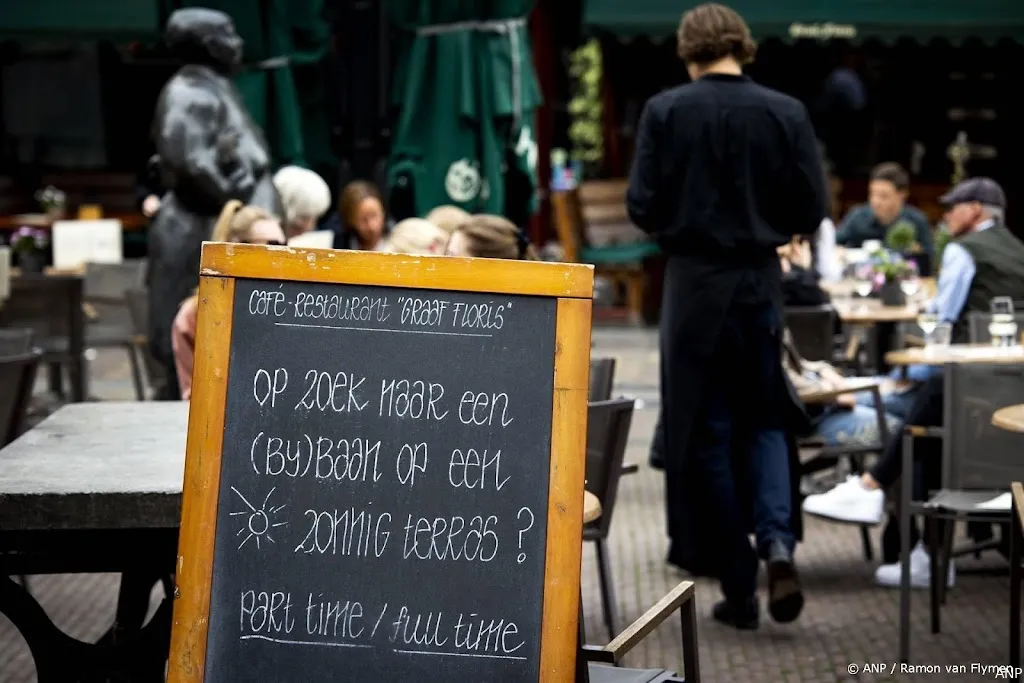 Café-Restaurant "Graaf Floris"
Op zoek naar een
(by)baan op een
zonnig terras ?
Part time / full time
© ANP / Ramon van Flymen
ANP